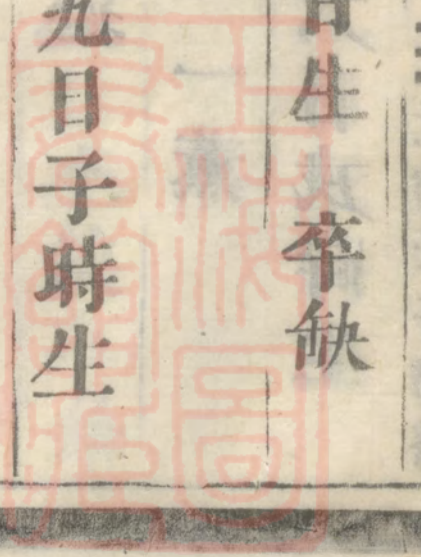 日生　卒缺
九日子時生